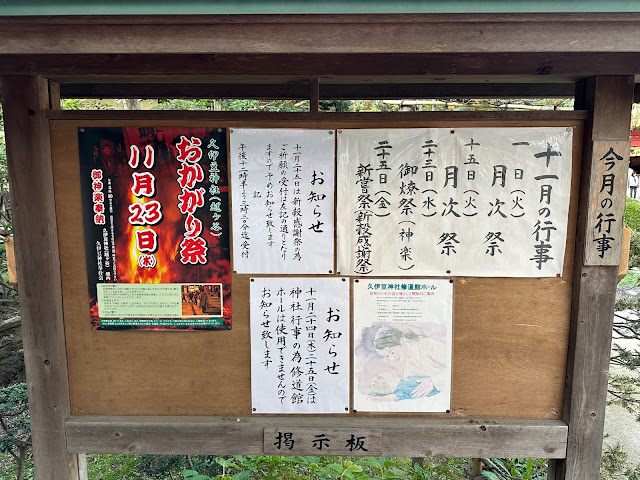 今月の行事
十一月の行事
一日（火）
月次祭
十五日（火）
月次祭
二十三日（水）
御燎祭（神楽）
二十五日（金）
新嘗祭（新穀感謝祭）
お知らせ
十一月二十五日は新穀感謝祭の為
ご祈願の受付は左記の通りとなり
ますので予めお知らせ致します
記
久伊豆神社（越ヶ谷）
おかがり祭
11月23日（水）
御神楽奉納
お知らせ
十一月二十四日（木）二十五日（金）は
神社行事の為修道館
ホールは使用できませんので
お知らせ致します
久伊豆神社修道館ホール
掲示板